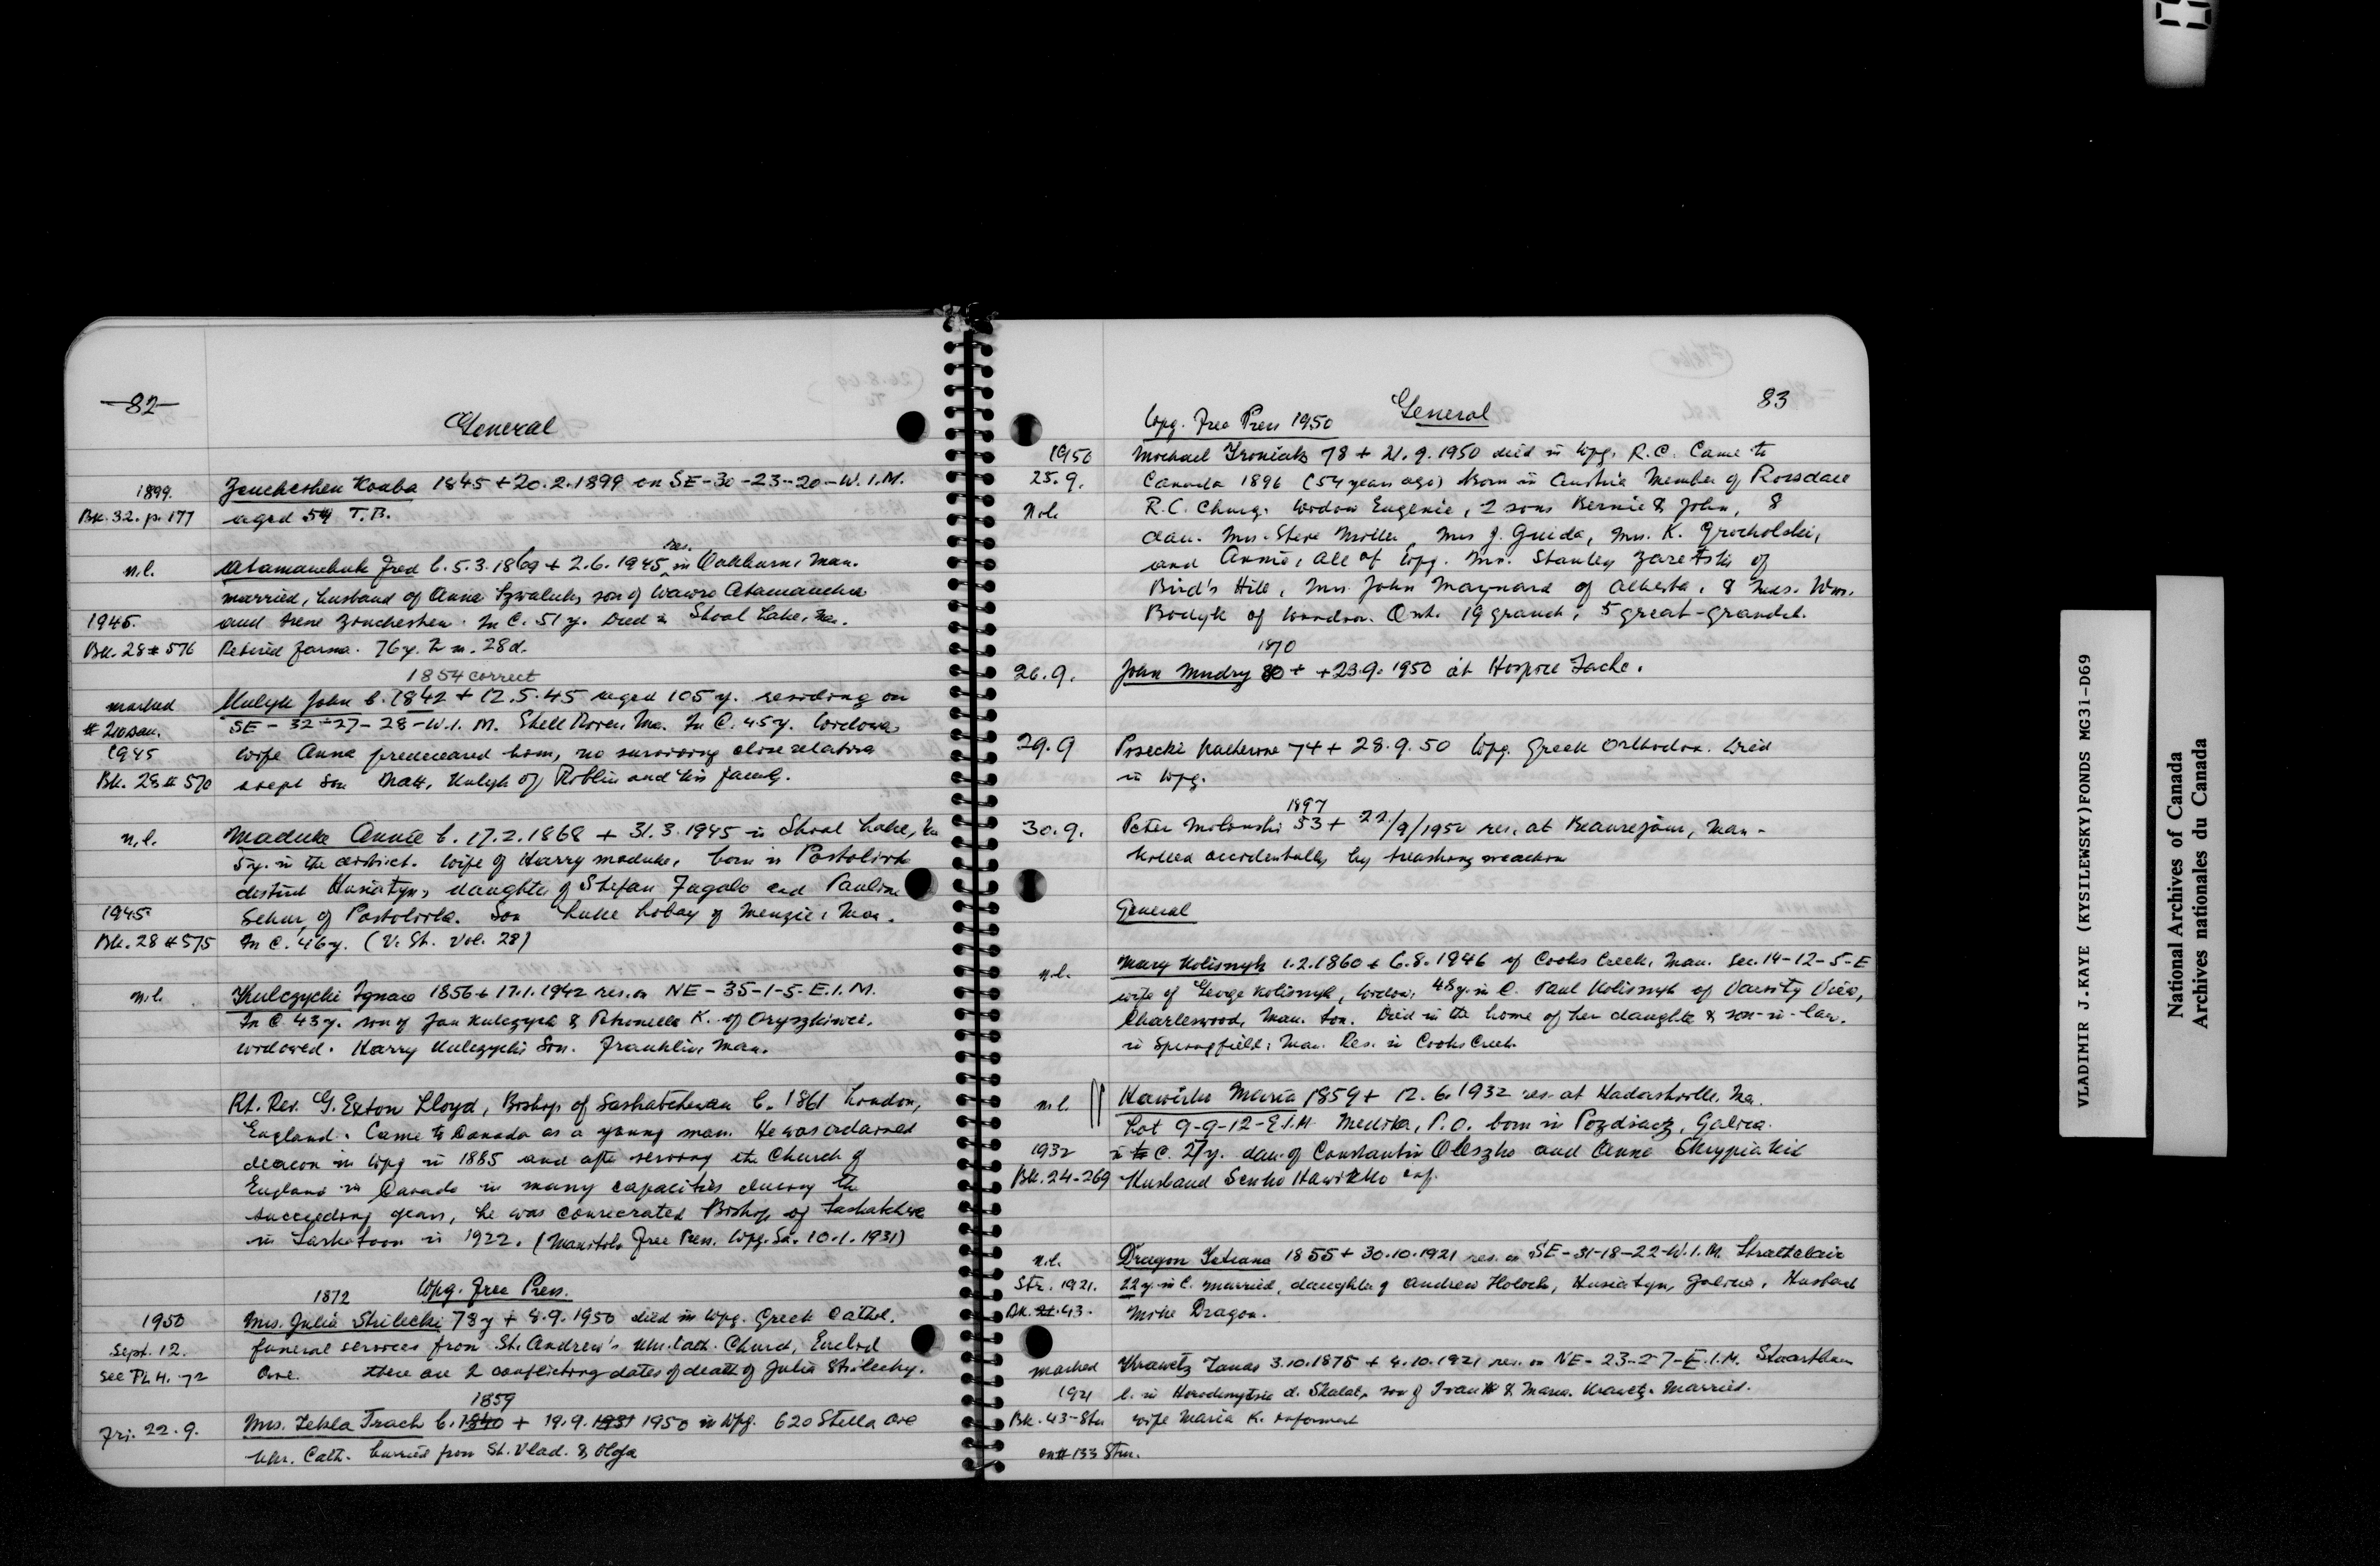 -82-
General
1899. Zencheshen Kouba 1845 + 20.2.1899 on SE-30-23-20-W.I.M.
Bk. 32. p. 177 aged 54 T.B.
res.
n.l. Atamanchuk Fred b. 5.3.1869 + 2.6.1945 in Oakburn, Man.
married, husband of Anna Szwaluk, son of Wawro Atamanchuk
1945. and Irene Zencheshen. In C. 51 y. Died in Shoal Lake, Ma.
Bk. 28 # 576 Retired farmer. 76 y. 2 m. 28 d.
1854 correct
marked Mulyk John b. 1842 + 12.5.45 aged 105 y. residing on
SE-32-27-28-W.I.M. Shell River, Ma. In C. 45 y. Widower,
1945 wife Anna predeceased him, no surviving close relative
Bk. 28 # 570 except son Matt, Kulyk of Roblin and his family.
n.l. Maduke Annie b. 17.2.1868 + 31.3.1945 in Shoal Lake, Ma
5 y. in the district. Wife of Harry Maduke, born in Postoliwka
district Husiatyn, daughter of Stefan Fugalo and Pauline
1945 of Postoliwka. Son Luke Lobay of Menzie, Man.
Bk. 28 # 575 In C. 46 y. (V. St. Vol. 28)
n.l. Kulczycki Ignace 1856 + 17.1.1942 res. on NE-35-1-5-E.I.M.
In C. 43 y. son of Jan Kulczycki & Petronella K. of Oryszkiwci.
widowed. Harry Kulczycki Son. Franklin, Man.
Rt. Rev. G. Exton Lloyd, Bishop of Saskatchewan b. 1861 London,
England. Came to Canada as a young man. He was ordained
deacon in Wpg in 1885 and after serving the Church of
England in Canada in many capacities during the
succeeding years, he was consecrated Bishop of Saskatchewan
in Saskatoon in 1922. (Manitoba Free Press. Wpg. Sa. 10.1.1931)
1872 Wpg. Free Press.
1950 Mrs. Julia Strilecki 78 y + 8.9.1950 died in Wpg. Greek Cathol.
Sept. 12. funeral services from St. Andrew's Ukr. Cath. Church, Euclid
Ave. there are 2 conflicting dates of death of Julia Strilecky.
1859
Fri. 22.9. Mrs. Tekla Trach b. 1840 + 19.9.1931 1950 in Wpg. 620 Stella Ave
Ukr. Cath. burried from St. Vlad. & Olga
83
General
Wpg. Free Press 1950
1950 Michael Kroniak 78 + 21.9.1950 died in Wpg. R.C. Came to
25.9. Canada 1896 (54 years ago) Born in Austria Member of Rossdale
n.l. R.C. Churg. Widow Eugenie, 2 sons Bernie & John, 8
dau. Mrs. Steve Miller, Mrs J. Guida, Mrs. K. Grocholski,
and Annie, all of Wpg. Mrs. Stanley Zaretski of
Bird's Hill, Mrs John Maynard of Alberta, & Mrs. Wm.
of Ont. 19 grandch; 5 great-grandch.
1870
26.9. John Mudry 80 + +23.9.1950 at Hospice Tache.
29.9 Posecki Katherine 74 + 28.9.50 Wpg. Greek Orthodox. Died
in Wpg.
1897
30.9. Peter Milonski 53 + 22/9/1950 res. at Beausejour, Man-
killed accidentally by treashing machine
General
n.l. Mary Kolisnyk 1.2.1860 + 6.8.1946 of Cooks Creek, Man. Sec. 14-12-5-E
wife of George Kolisnyk, widow, 48 y. in C. Paul Kolisnyk of Varsity View,
Charleswood, Man. Son. Died in the home of her daughter & son-in-law.
in Springfield, Man. Res. in Cooks Creek.
n.l. Hawirko Maria 1859 + 12.6.1932 res. at Hadashville, Ma.
Lot 9-9-12-E.I.M. Medika, P.O. born in Pozdiacz, Galica.
1932 in C. 27 y. dau. of Constantin Oleszko and Anna
Bk. 24-269 Husband Senko Hawirko inf.
n.l. Dragon Tetiana 1855 + 30.10.1921 res. on SE-31-18-22-W.I.M. Strathclair
Str. 1921. 22 y. in C. married, daughter of Andrew Holoch, Husiatyn, Galicia, Husband
Bk. 21.43. Mike Dragon.
marked Krawetz Tanas 3.10.1875 + 4.10.1921 res. on NE-23-2-7-E.I.M. Stuartburn
1921 b. in d. Skalat, son of Ivan & Maria Krawetz. Married.
Bk. 43-Stu wife Maria K. informant
on # 133 Stu.
VLADIMIR J.KAYE (KYSILEWSKY)FONDS MG31-D69
National Archives of Canada
Archives nationales du Canada